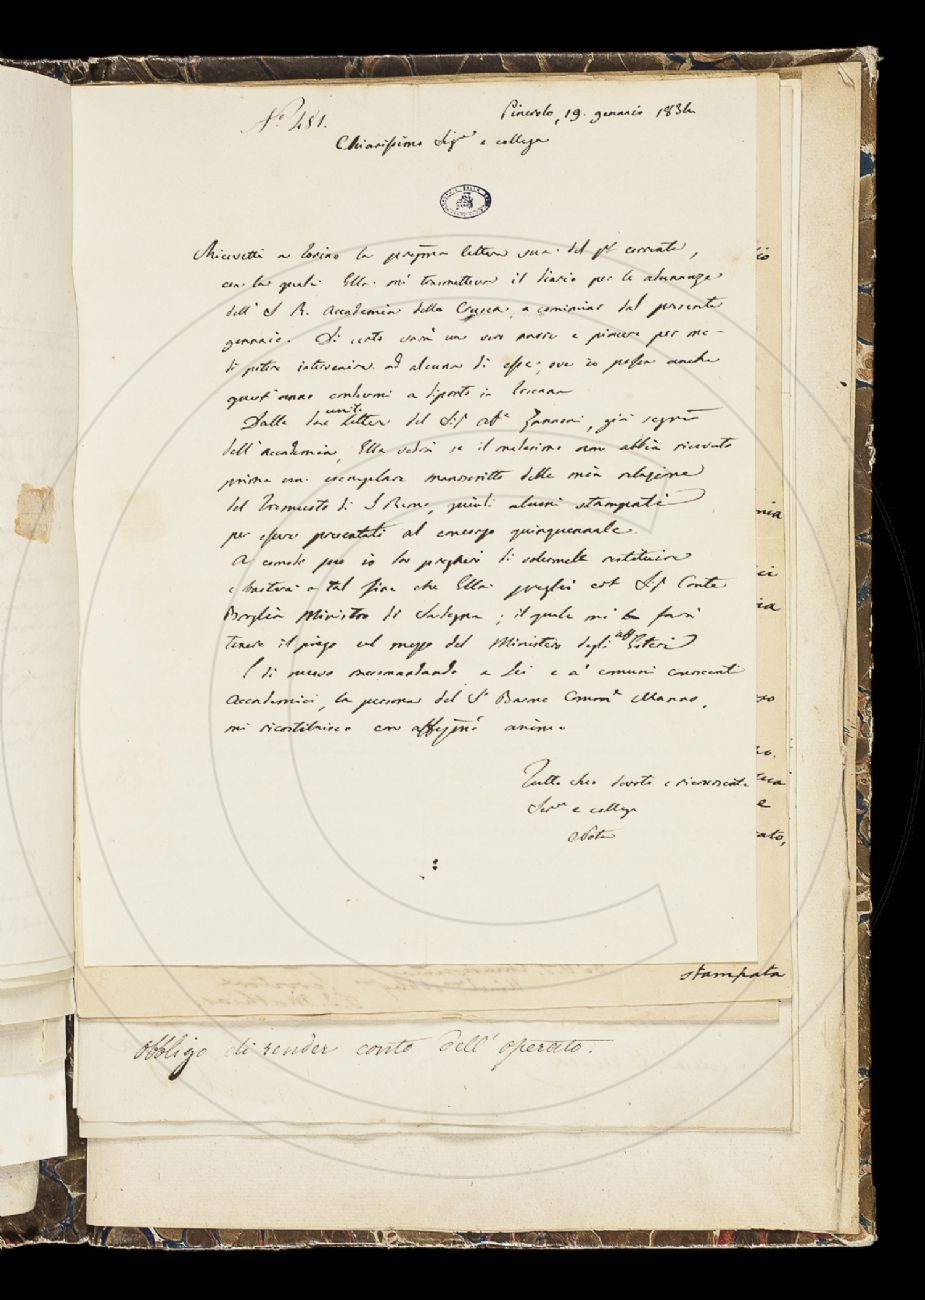 N.º 481.
Pinerolo, 19. gennaio 1834
Chiarissimo Sigr e collega
Ricevetti a Torino la pregma lettera sua del pº corrente,
con la quale Ella mi trasmetteva il diario per le adunanze
dell' I R. Accademia della Crusca, a cominciar dal presente
gennaio. Di certo sarà un vero onore e piacere per me
di potere intervenire ad alcuna di esse; ove io possa anche
quest'anno condurmi a diporto in Toscana
Dalle due unite lettere del Sigr abe Zannoni, già segrio
dell'Accademia, Ella vedrà se il medesimo non abbia ricevuto
prima un esemplare manoscritto della mia relazione
del tremuoto di S Remo, quindi alcuni stampati
per essere presentati al concorso quinquennale.
A comodo suo io la pregherei di volermele restituire
e basterà a tal fine che Ella preghi il Sigr Conte
Broglia Ministro di Sardegna; il quale mi farà
tenere il piego col mezzo del Ministero degli aff Esteri
E di nuovo raccomandando a Lei e a' comuni conoscenti
Accademici, la persona del Sr Barone Commre Manno,
mi ricostituisco con affezmo animo
Tutto Suo devoto e riconoscente
Serre e collega
Nota
stampata
obbligo di render conto dell' operato.